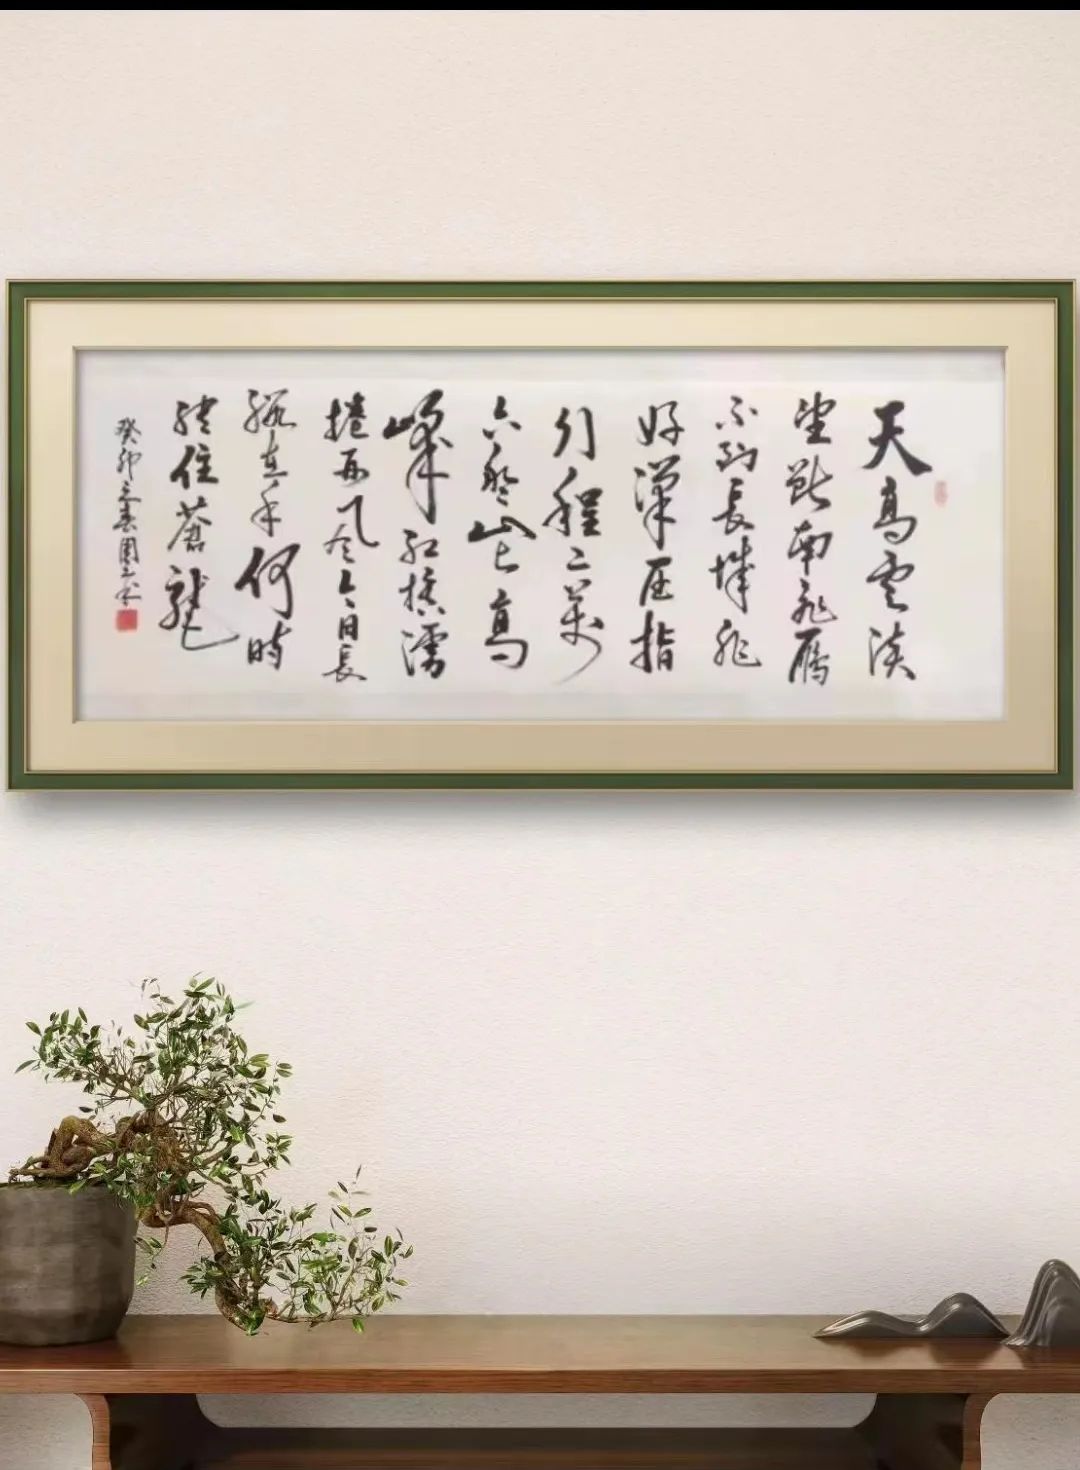 天高雲淡
望斷南飛雁
不到長城非
好漢屈指
行程二萬
六盤山上高
峰紅旗漫
捲西風今日長
纓在手何時
縛住蒼龍
癸卯春